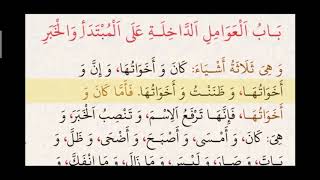 بَابُ اَلْعَوَامِلِ اَلدَّاخِلَةِ عَلَى اَلْمُبْتَدَأِ وَالْخَبَرِ
وَ هِيَ ثَلَاثَةُ أَشْيَاءَ: كَانَ وَ أَخَوَاتُهَا، وَ إِنَّ وَ
أَخَوَاتُهَا، وَ ظَنَنْتُ وَ أَخَوَاتُهَا. فَأَمَّا كَانَ وَ
أَخَوَاتُهَا، فَإِنَّهَا تَرْفَعُ اَلِاسْمَ، وَ تَنْصِبُ اَلْخَبَرَ، وَ
هِيَ: كَانَ، وَ أَمْسَى، وَ أَصْبَحَ، وَ أَضْحَى، وَ ظَلَّ،
وَ بَاتَ، وَ صَارَ، وَ لَيْسَ، وَ مَا زَالَ، وَ مَا اِنْفَكَّ، وَ